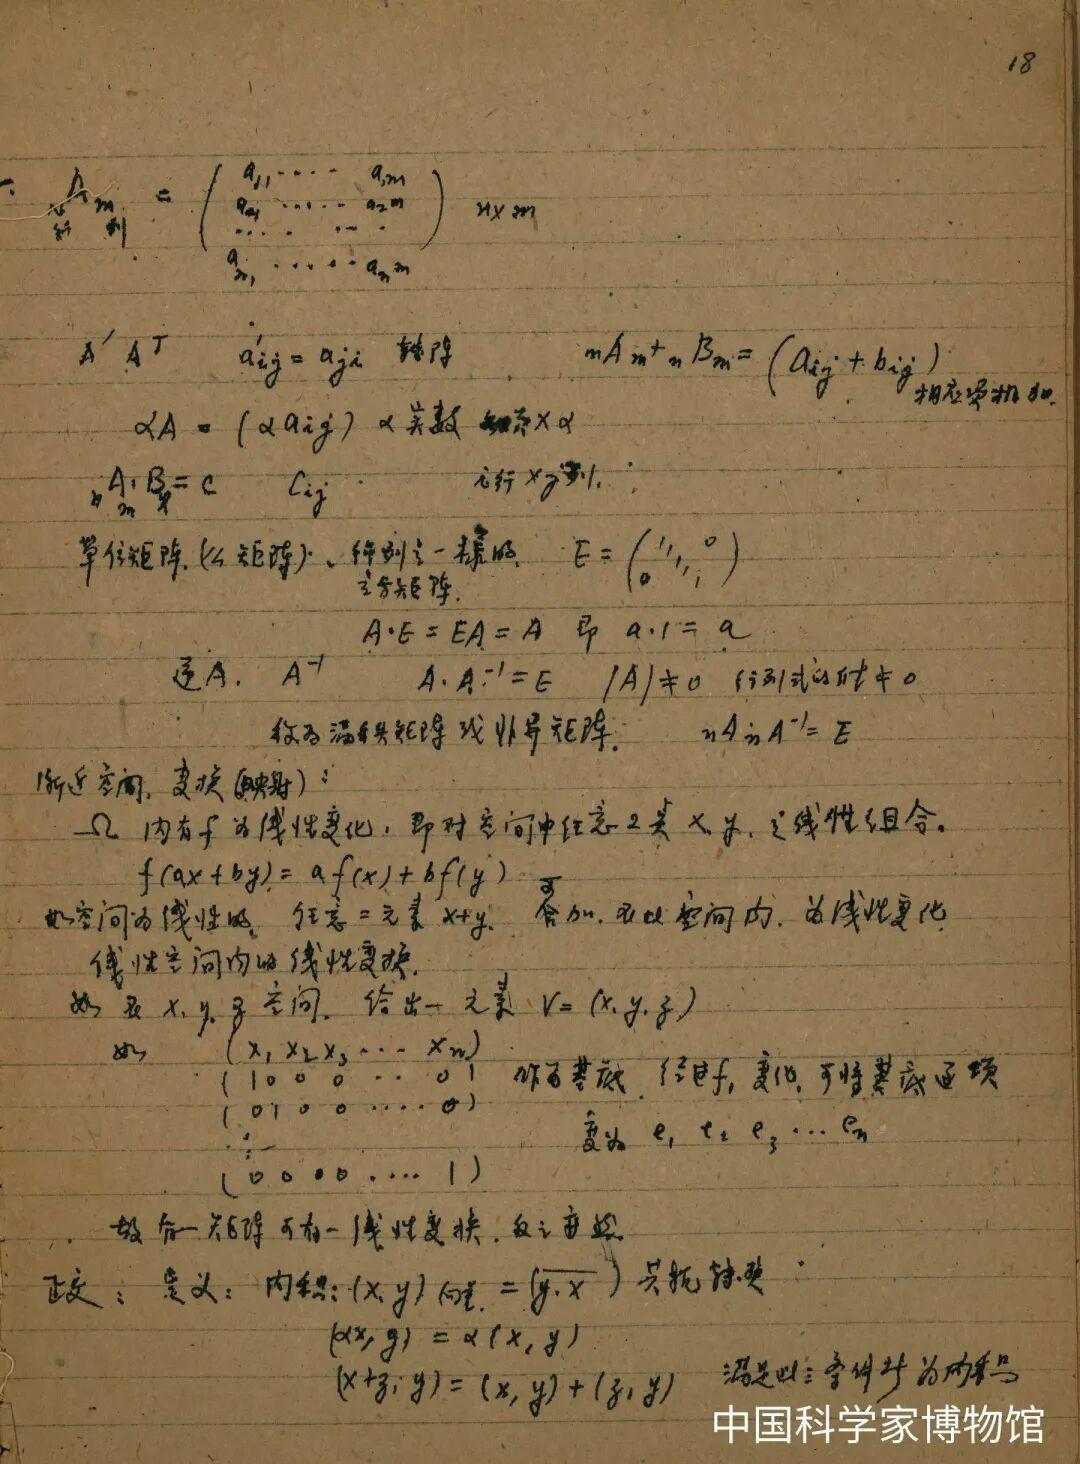 18
A m = ( a11 ···· a1m
行 列
a21 ······ a2m ) n×m
···· ····
an1 ······ anm
A′ A^T a′ij = aji 转阵 nAm + nBm = (aij + bij)
相应项相加.
αA = (αaij) α 实数 ×α
nAm·Bx = C Cij i行×j列.
单位矩阵.(么矩阵)、行列之一样的. E = (1 1 1 0 0 1)
之方矩阵.
A·E = EA = A 即 a·1 = a
逆A. A^-1 A·A^-1 = E |A|≠0 行列式的值≠0
称为满秩矩阵或非异矩阵. nAnA^-1 = E
空间. 变换(映射):
Ω 内有 f 为线性变化, 即对空间中任意2类 x, y, 之线性组合。
f(ax+by) = af(x)+bf(y)
如空间为线性的, 任意二元素 x+y. 可叠加. 在此空间内. 为线性变化
线性空间内的线性变换.
如在 x, y, z 空间. 给出一元素 V = (x, y, z)
如 (x1 x2 x3 ··· xn)
(1 0 0 0 ·· 0) 作为基底. 经过f, 变化, 可将基底逐项
(0 1 0 0 ···· 0)
变为 e1 e2 e3 ··· en
(0 0 0 0 ···· 1)
故有一矩阵可有一线性变换. 反之亦然.
正交: 定义: 内积: (x, y) = (y, x) 共轭转换
(αx, y) = α(x, y)
(x+z, y) = (x, y) + (z, y) 满足此三条件才为内积
中国科学家博物馆